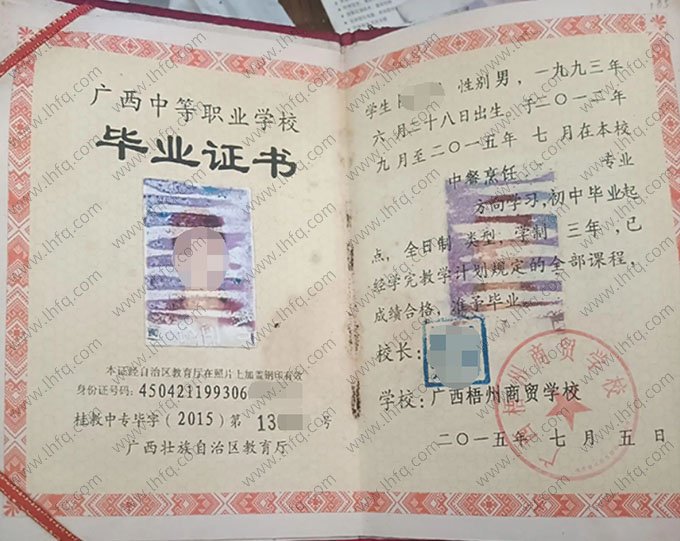 广西中等职业学校
毕业证书
本证经自治区教育厅在照片上加盖钢印有效
身份证号码:450421199306
桂教中专毕字(2015)第 13 号
广西壮族自治区教育厅
学生 性别男,一九九三年
六月二十八日出生,于二〇一二年
九月至二〇一五年 七 月在本校
中餐烹饪 专业
方向学习,初中毕业起
点,全日制 类型,学制 三年,已
经学完教学计划规定的全部课程,
成绩合格,准予毕业。
校长:
学校:广西梧州商贸学校
二〇一五年 七 月 五 日
广西梧州商贸学校
www.lhfq.com